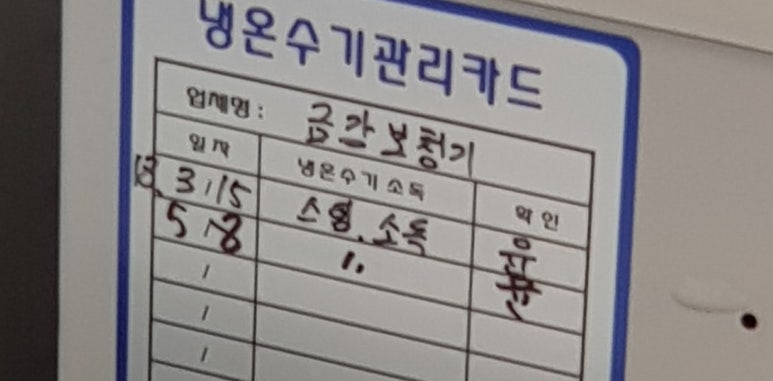 냉온수기관리카드
업체명: 금간보청기
일자 냉온수기 소독 확인
18. 3/15 스팀. 소독
5/8 〃
/
/
/